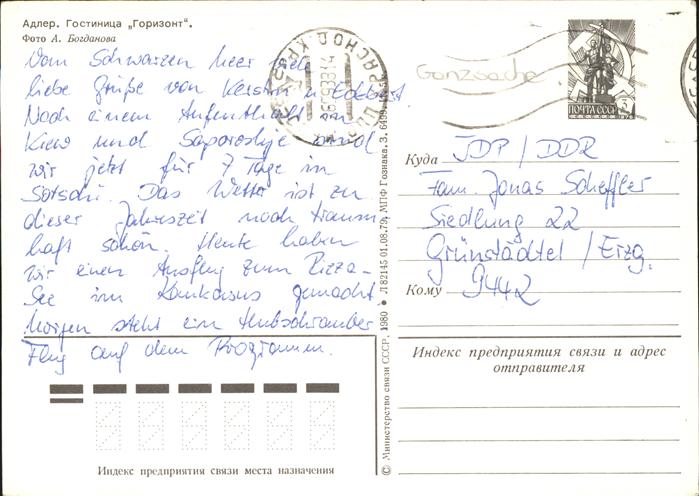 Адлер. Гостиница „Горизонт“.
Фото А. Богданова
Vom Schwarzen Meer viele
liebe Grüße von Kerstin u. Edebert.
Nach einem Aufenthalt in
Kiew und Saporoshje sind
wir jetzt für 7 Tage in
Sotschi. Das Wetter ist zu
dieser Jahreszeit noch traum-
haft schön. Heute haben
wir einen Ausflug zum Rizza-
See im Kaukasus gemacht.
Morgen steht ein Hubschrauber
Flug auf dem Programm.
Индекс предприятия связи места назначения
© Министерство связи СССР. 1980 ● Л 82145 01.08.79. МПФ Гознака. З.
Ganzsache
ПОЧТА СССР
Куда JDP / DDR
Fam. Jonas Scheffler
Siedlung 22
Grünstädtel / Erzg.
Кому 9442
Индекс предприятия связи и адрес
отправителя